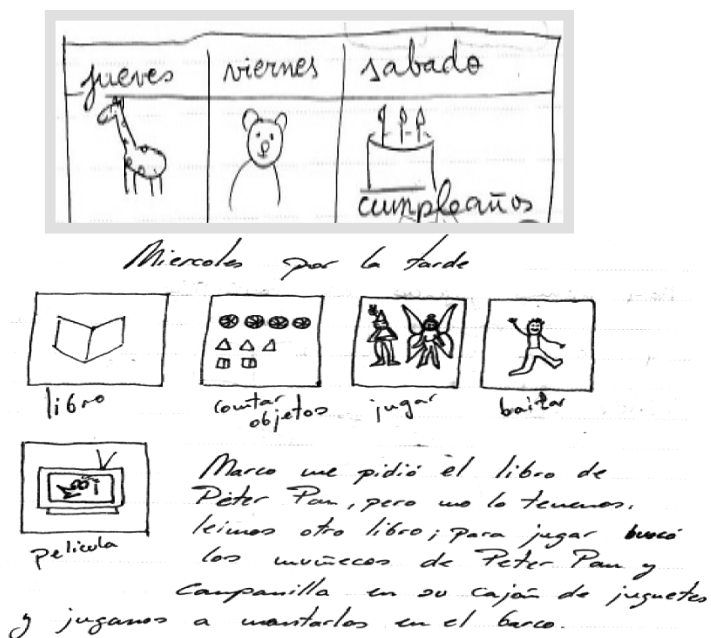 jueves viernes sabado
cumpleaños
Miercoles por la tarde
libro contar objetos jugar bailar
pelicula
Marco me pidió el libro de
Peter Pan, pero no lo tenemos.
leimos otro libro; para jugar buscó
los muñecos de Peter Pan y
Campanilla en su cajón de juguetes
y jugamos a montarlos en el barco.